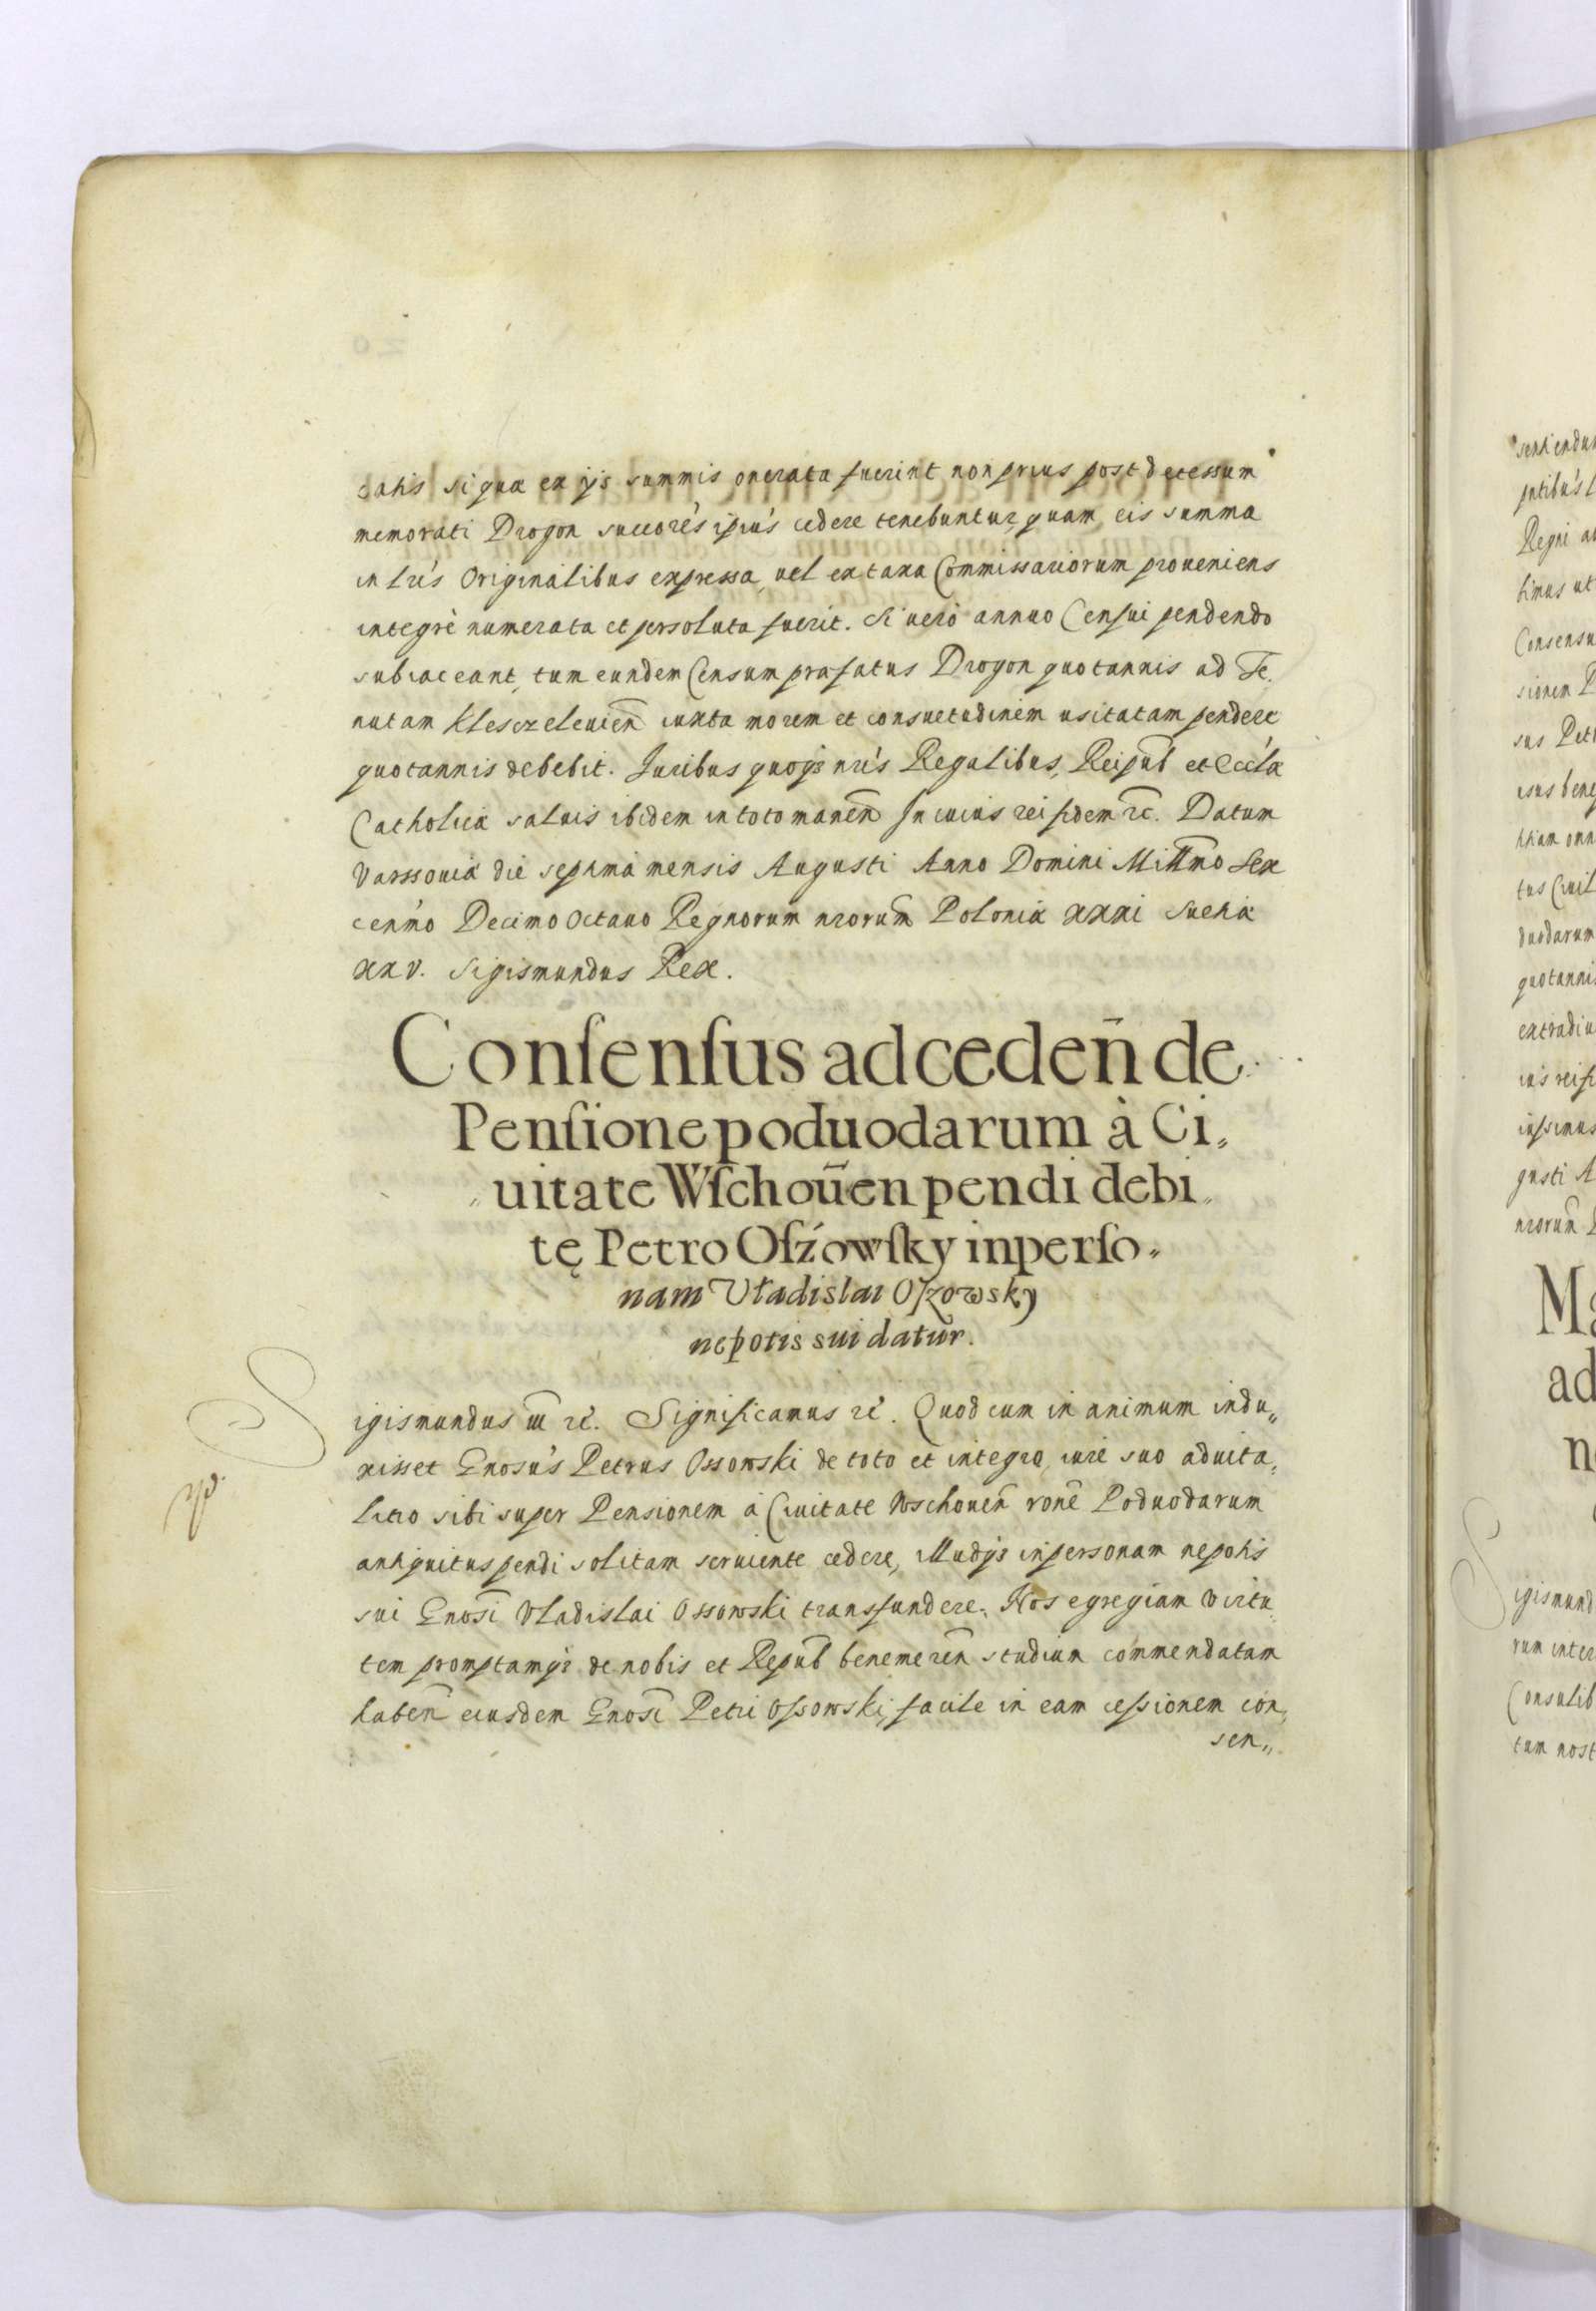 catis si quæ ex ijs summis onerata fuerint non prius post decessum
memorati Drogon succorẽs ipiús cedere tenebuntur, quam eis summa
in lrís Originalibus expressa, uel ex taxa Commissariorum proueniens
integrè numerata et persoluta fuerit. Si uerò annuo Censui pendendo
subiaceant, tum eundem Censum præfatus Drogon quotannis ad Te,
nutam Klesczeleuien̄ iuxta morem et consuetudinem usitatam pendere
quotannis debebit. Iuribus quoq; nrís Regalibus, Reipub̄ et Eccĺæ
Catholicæ saluis ibidem in toto manen̄ In cuius rei fidem rc̄. Datum
Varssouiæ die septima mensis Augusti Anno Domini Millm̄o Sex
centm̄o Decimo Octauo Regnorum nrorum̄ Poloniæ xxxi Suetiæ
xxv. Sigismundus Rex.
Consensus ad ceden̄ de
Pensione poduodarum à Ci„
„uitate Wschoūen pendi debi„
tę Petro Osźowsky in perso„
nam Vładislai Oszowsky
nepotis sui datur.
Sigismundus iii rć. Significamus rć. Quod cum in animum indu„
xisset Gnosús Petrus Ossowski de toto et integro, iure suo aduita„
litio sibi super Pensionem à Ciuitate Wschouen̄ ronē Poduodarum
antiquitus pendi solitam seruiente cedere, illudq; in personam nepotis
sui Gnosī Vladislai Ossowski transfundere. Nos egregiam virtu„
tem promptamq; de nobis et Repub̄ benemeren̄ studium commendatam
haben̄ eiusdem Gnosī Petri Ossowski, facile in eam cessionem con„
sen„